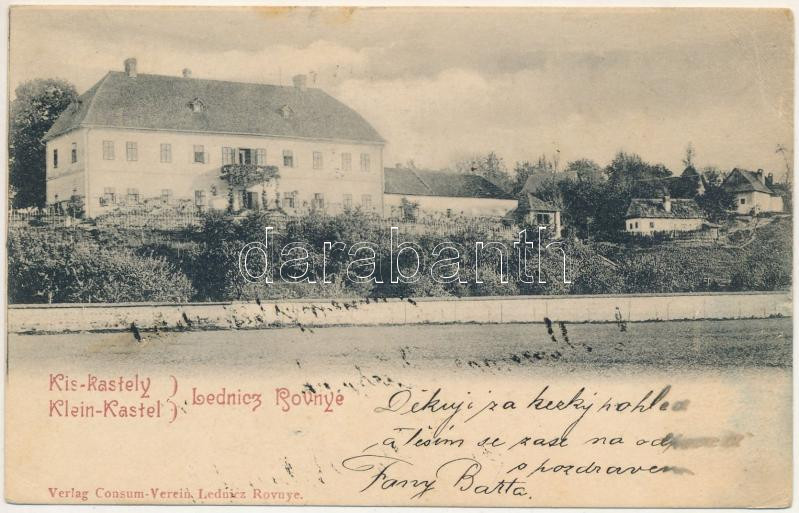 darabanth
Kis-kastely )
Klein-Kastel ) Lednicz Rovnyé
Děkuji za hezký pohled
a těším se zase na odpověď
s pozdravem
Fany Barta.
Verlag Consum-Verein, Lednicz Rovnye.